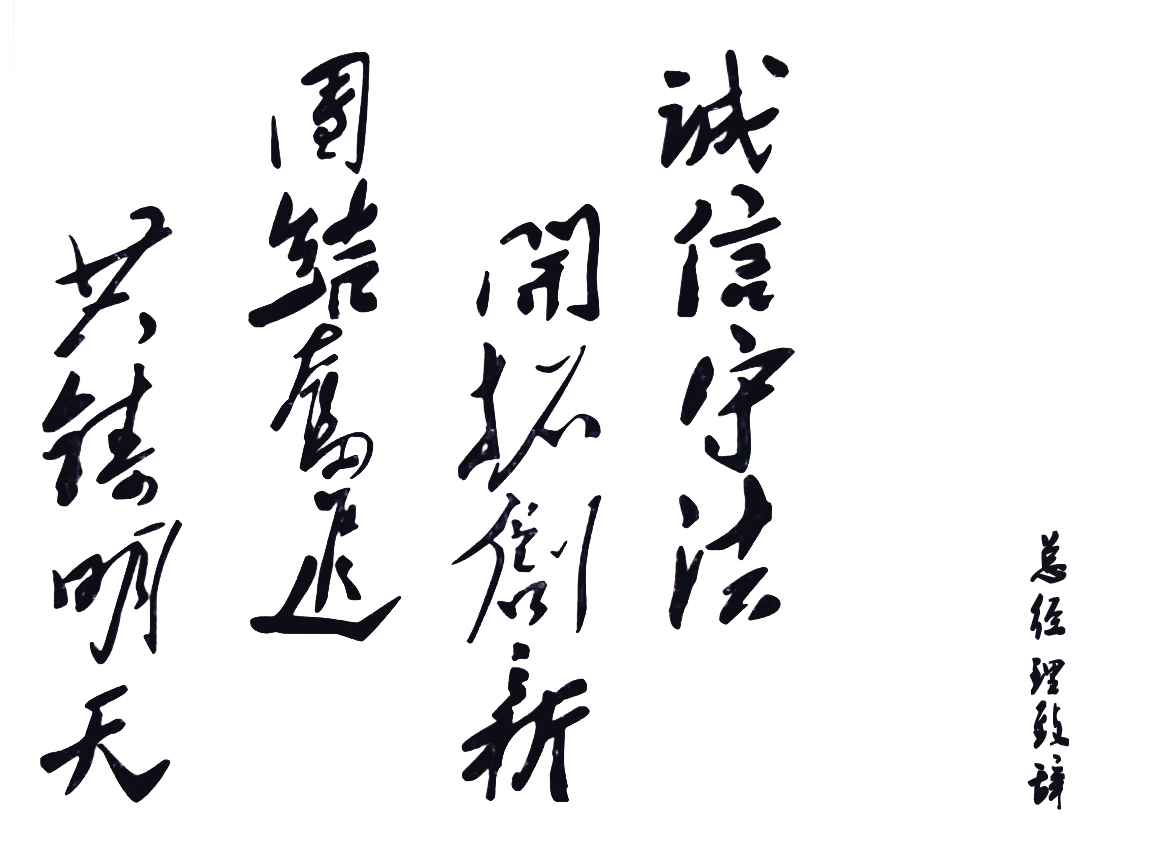 总经理致辞
誠信守法
開拓創新
團結奮進
共鑄明天